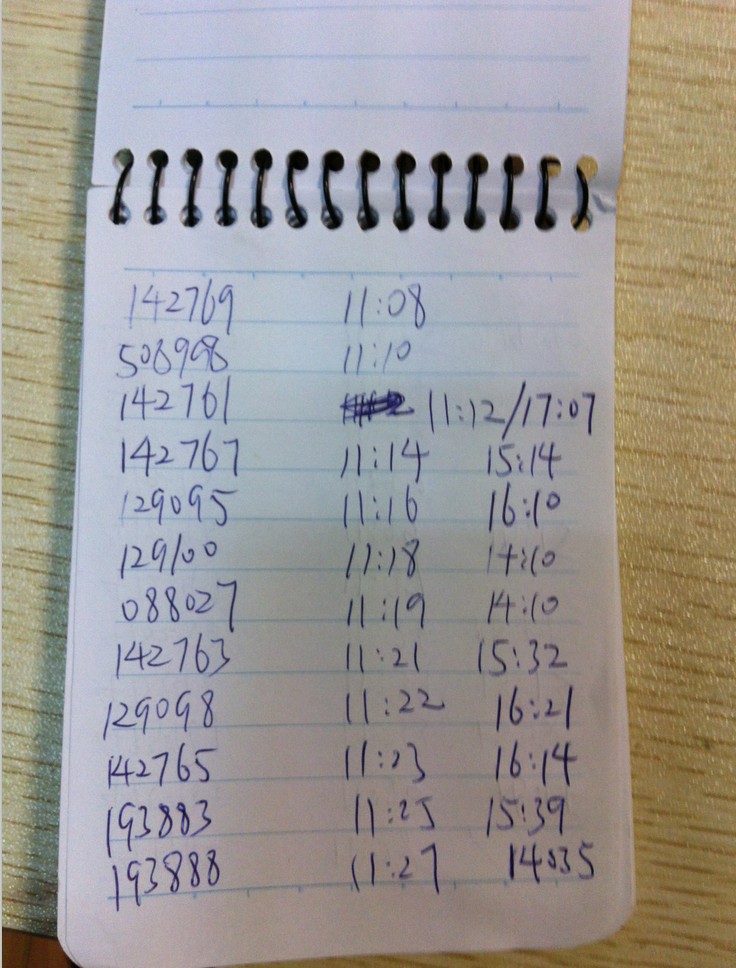 142769 11:08
508998 11:10
142761 11:12/17:07
142767 11:14 15:14
129095 11:16 16:10
129100 11:18 14:10
088027 11:19 14:10
142763 11:21 15:32
129098 11:22 16:21
142765 11:23 16:14
193883 11:25 15:39
193888 11:27 14:35